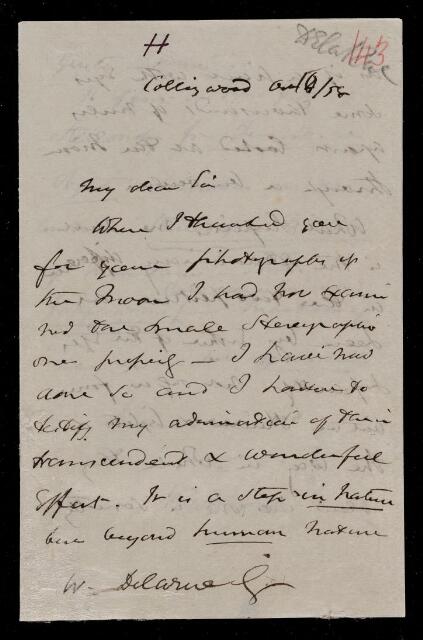 H
143
Collingwood Oct /58
My dear Sir
When I thanked you
for your photographs of
the Moon I had not exami
ned the small stereographic
ones properly — I have now
done so and I hasten to
testify my admiration of their
transcendent & wonderful
Effect. It is a step in nature
but beyond human nature
W. Delarue Esq